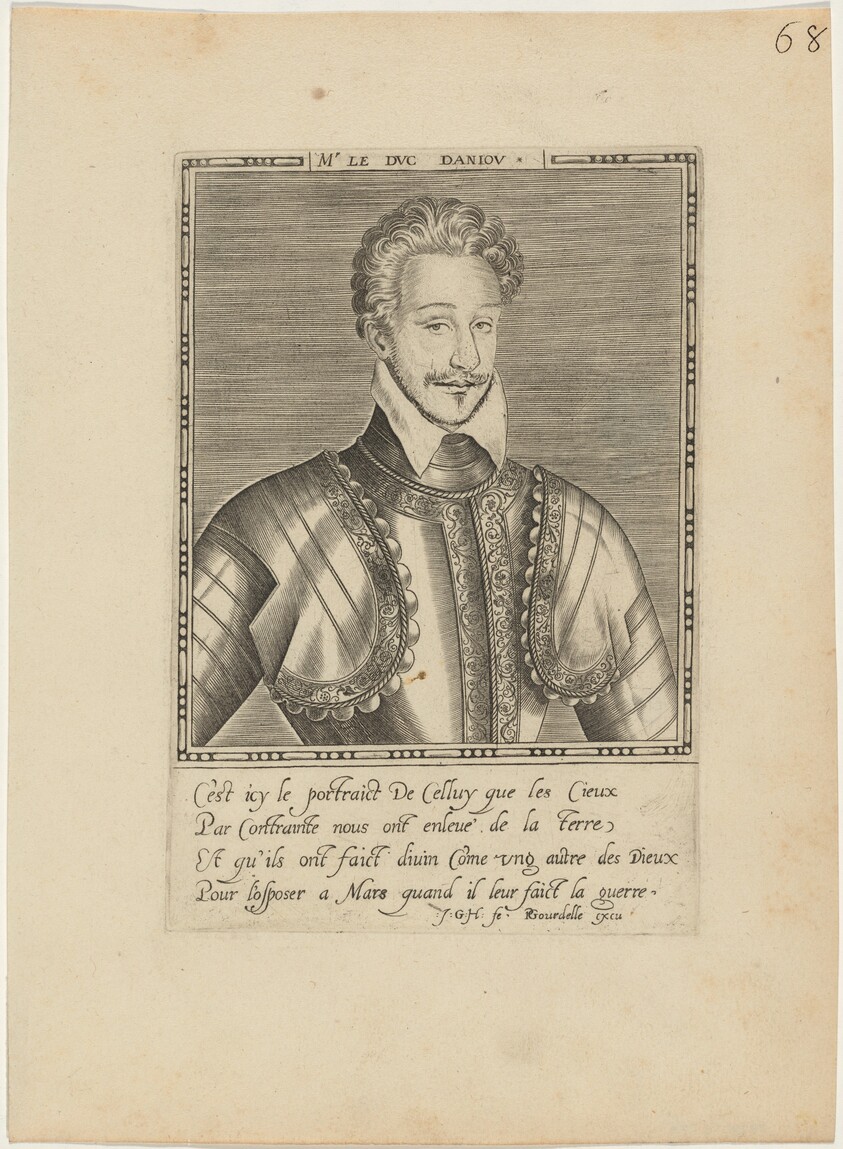 68
Mr LE DVC DANIOV *
C'est icy le portraict De Celluy que les Cieux
Par Contrainte nous ont enleue . de la terre
Et qu'ils ont faict diuin Cōme vng autre des Dieux
Pour l'opposer a Mars quand il leur faict la guerre .
.J:G:H: fe . PGourdelle excu